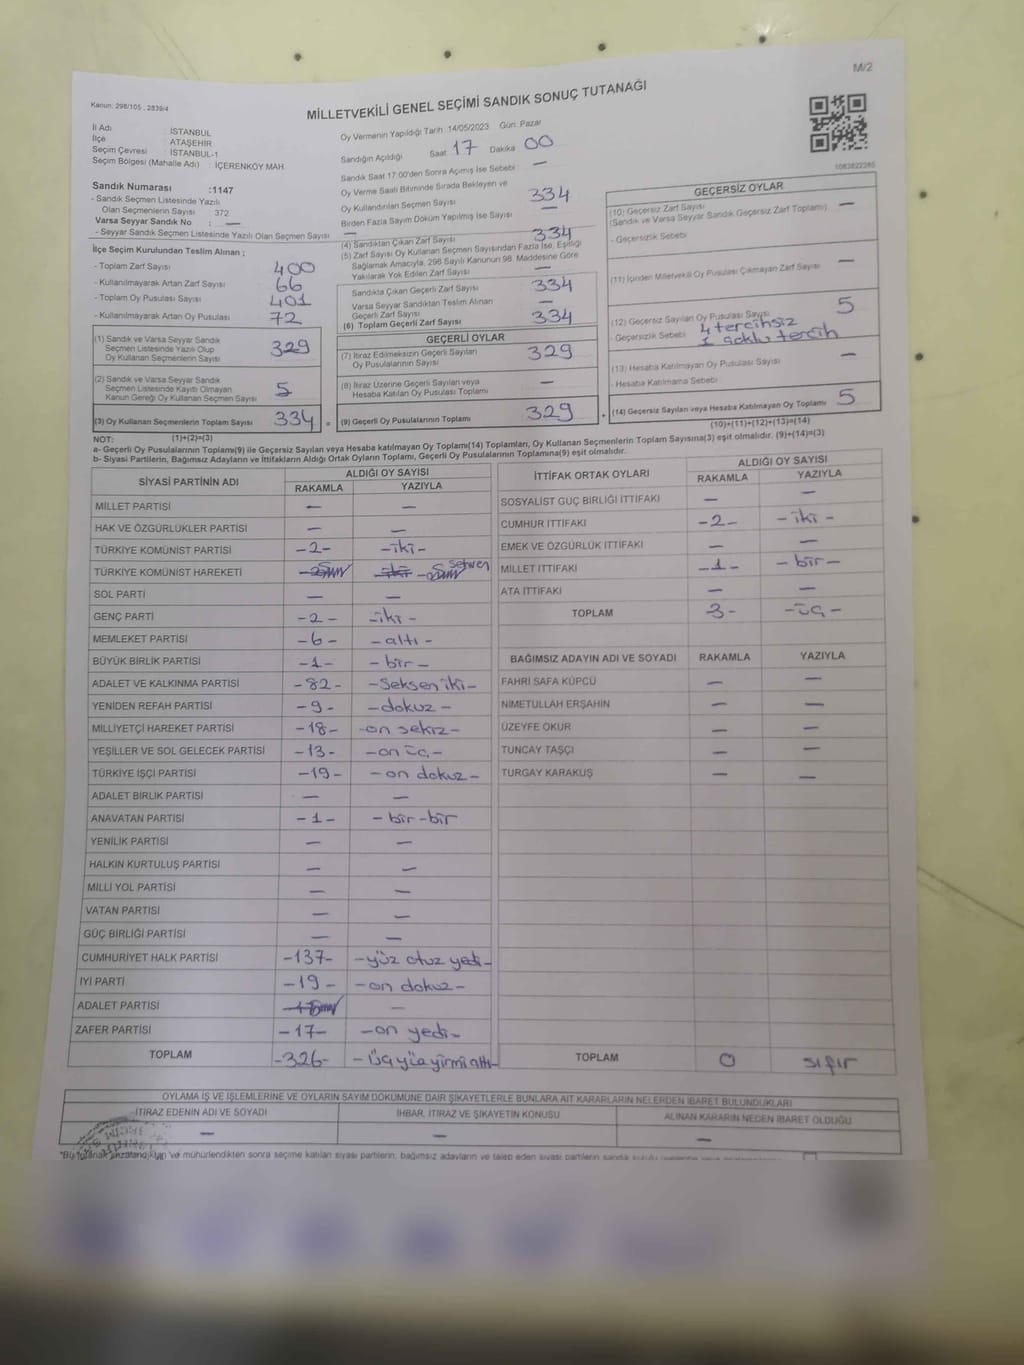 M/2
Kanun: 298/105 , 2839/4
MİLLETVEKİLİ GENEL SEÇİMİ SANDIK SONUÇ TUTANAĞI
1083822265
İl Adı : İSTANBUL
İlçe ATAŞEHİR
Seçim Çevresi : İSTANBUL-1
Seçim Bölgesi (Mahalle Adı) : İÇERENKÖY MAH.
Sandık Numarası :1147
- Sandık Seçmen Listesinde Yazılı
Olan Seçmenlerin Sayısı 372
Varsa Seyyar Sandık No : —
- Seyyar Sandık Seçmen Listesinde Yazılı Olan Seçmen Sayısı : —
İlçe Seçim Kurulundan Teslim Alınan ;
- Toplam Zarf Sayısı 400
- Kullanılmayarak Artan Zarf Sayısı 66
- Toplam Oy Pusulası Sayısı 401
- Kullanılmayarak Artan Oy Pusulası 72
(1) Sandık ve Varsa Seyyar Sandık
Seçmen Listesinde Yazılı Olup
Oy Kullanan Seçmenlerin Sayısı 329
(2) Sandık ve Varsa Seyyar Sandık
Seçmen Listesinde Kayıtlı Olmayan
Kanun Gereği Oy Kullanan Seçmen Sayısı 5
(3) Oy Kullanan Seçmenlerin Toplam Sayısı 334
(1)+(2)=(3)
Oy Vermenin Yapıldığı Tarih :14/05/2023 Gün: Pazar
Sandığın Açıldığı Saat 17 Dakika 00
Sandık Saat 17:00'den Sonra Açımış İse Sebebi : —
Oy Verme Saati Bitiminde Sırada Bekleyen ve
Oy Kullandırılan Seçmen Sayısı 334
Birden Fazla Sayım Döküm Yapılmış İse Sayısı —
(4) Sandıktan Çıkan Zarf Sayısı 334
(5) Zarf Sayısı Oy Kullanan Seçmen Sayısından Fazla İse, Eşitliği
Sağlamak Amacıyla, 298 Sayılı Kanunun 98. Maddesine Göre
Yakılarak Yok Edilen Zarf Sayısı —
Sandıkta Çıkan Geçerli Zarf Sayısı 334
Varsa Seyyar Sandıktan Teslim Alınan
Geçerli Zarf Sayısı —
(6) Toplam Geçerli Zarf Sayısı 334
GEÇERLİ OYLAR
(7) İtiraz Edilmeksizin Geçerli Sayılan
Oy Pusulalarının Sayısı 329
(8) İtiraz Üzerine Geçerli Sayılan veya
Hesaba Katılan Oy Pusulası Toplamı —
(9) Geçerli Oy Pusulalarının Toplamı 329
GEÇERSİZ OYLAR
(10) Geçersiz Zarf Sayısı
(Sandık ve Varsa Seyyar Sandık Geçersiz Zarf Toplamı) —
- Geçersizlik Sebebi
(11) İçinden Milletvekili Oy Pusulası Çıkmayan Zarf Sayısı —
(12) Geçersiz Sayılan Oy Pusulası Sayısı 5
- Geçersizlik Sebebi 4 tercihsiz
1 çoklu tercih
(13) Hesaba Katılmayan Oy Pusulası Sayısı —
- Hesaba Katılmama Sebebi
(14) Geçersiz Sayılan veya Hesaba Katılmayan Oy Toplamı 5
(10)+(11)+(12)+(13)=(14)
NOT:
a- Geçerli Oy Pusulalarının Toplamı(9) ile Geçersiz Sayılan veya Hesaba katılmayan Oy Toplamı(14) Toplamları, Oy Kullanan Seçmenlerin Toplam Sayısına(3) eşit olmalıdır. (9)+(14)=(3)
b- Siyasi Partilerin, Bağımsız Adayların ve İttifakların Aldığı Ortak Oyların Toplamı, Geçerli Oy Pusulalarının Toplamına(9) eşit olmalıdır.
SİYASİ PARTİNİN ADI ALDIĞI OY SAYISI
RAKAMLA YAZIYLA
MİLLET PARTİSİ — —
HAK VE ÖZGÜRLÜKLER PARTİSİ — —
TÜRKİYE KOMÜNİST PARTİSİ -2- -iki-
TÜRKİYE KOMÜNİST HAREKETİ
SOL PARTİ — —
GENÇ PARTİ -2- -iki-
MEMLEKET PARTİSİ -6- -altı-
BÜYÜK BİRLİK PARTİSİ -1- -bir-
ADALET VE KALKINMA PARTİSİ -82- -Seksen iki-
YENİDEN REFAH PARTİSİ -9- -dokuz-
MİLLİYETÇİ HAREKET PARTİSİ -18- -on sekiz-
YEŞİLLER VE SOL GELECEK PARTİSİ -13- -on üç-
TÜRKİYE İŞÇİ PARTİSİ -19- -on dokuz-
ADALET BİRLİK PARTİSİ — —
ANAVATAN PARTİSİ -1- -bir-bir
YENİLİK PARTİSİ — —
HALKIN KURTULUŞ PARTİSİ — —
MİLLİ YOL PARTİSİ — —
VATAN PARTİSİ — —
GÜÇ BİRLİĞİ PARTİSİ — —
CUMHURİYET HALK PARTİSİ -137- -yüz otuz yedi-
İYİ PARTİ -19- -on dokuz-
ADALET PARTİSİ —
ZAFER PARTİSİ -17- -on yedi-
TOPLAM -326- -üç yüz yirmi altı-
İTTİFAK ORTAK OYLARI ALDIĞI OY SAYISI
RAKAMLA YAZIYLA
SOSYALİST GÜÇ BİRLİĞİ İTTİFAKI — —
CUMHUR İTTİFAKI -2- -iki-
EMEK VE ÖZGÜRLÜK İTTİFAKI — —
MİLLET İTTİFAKI -1- -bir-
ATA İTTİFAKI — —
TOPLAM -3- -üç-
BAĞIMSIZ ADAYIN ADI VE SOYADI RAKAMLA YAZIYLA
FAHRİ SAFA KÜPCÜ — —
NİMETULLAH ERŞAHİN — —
ÜZEYFE OKUR — —
TUNCAY TAŞÇI — —
TURGAY KARAKUŞ — —
TOPLAM 0 sıfır
OYLAMA İŞ VE İŞLEMLERİNE VE OYLARIN SAYIM DÖKÜMÜNE DAİR ŞİKAYETLERLE BUNLARA AİT KARARLARIN NELERDEN İBARET BULUNDUKLARI
İTİRAZ EDENİN ADI VE SOYADI İHBAR, İTİRAZ VE ŞİKAYETİN KONUSU ALINAN KARARIN NEDEN İBARET OLDUĞU
— — —
ve mühürlendikten sonra seçime katılan siyasi partilerin, bağımsız adayların ve talep eden siyasi partilerin sandık